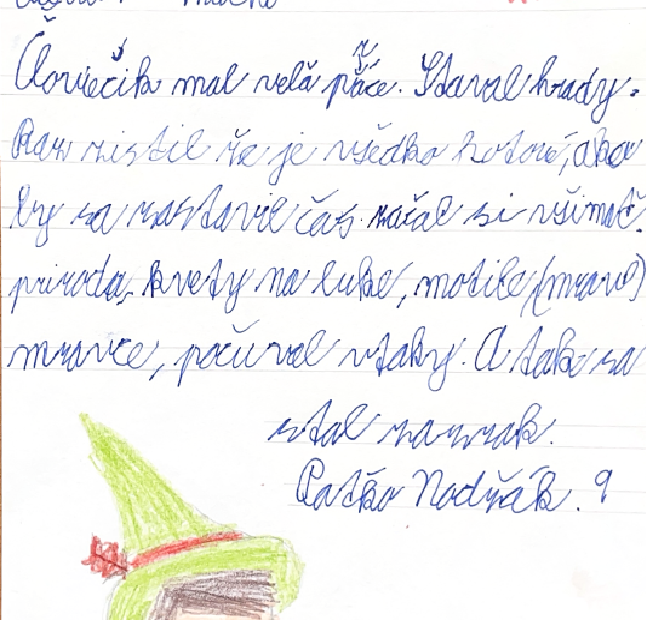 Človiečik mal velă práce. Staval hrady.
Raz zistil že je všedko hotové, ako
by sa zastavil čas. začal si všimať.
priroda, kvety na luke, motile, (mravč)
mravce, počúval vtaky. A tak sa
stal zazrak.
Paťko Nodžák. 9